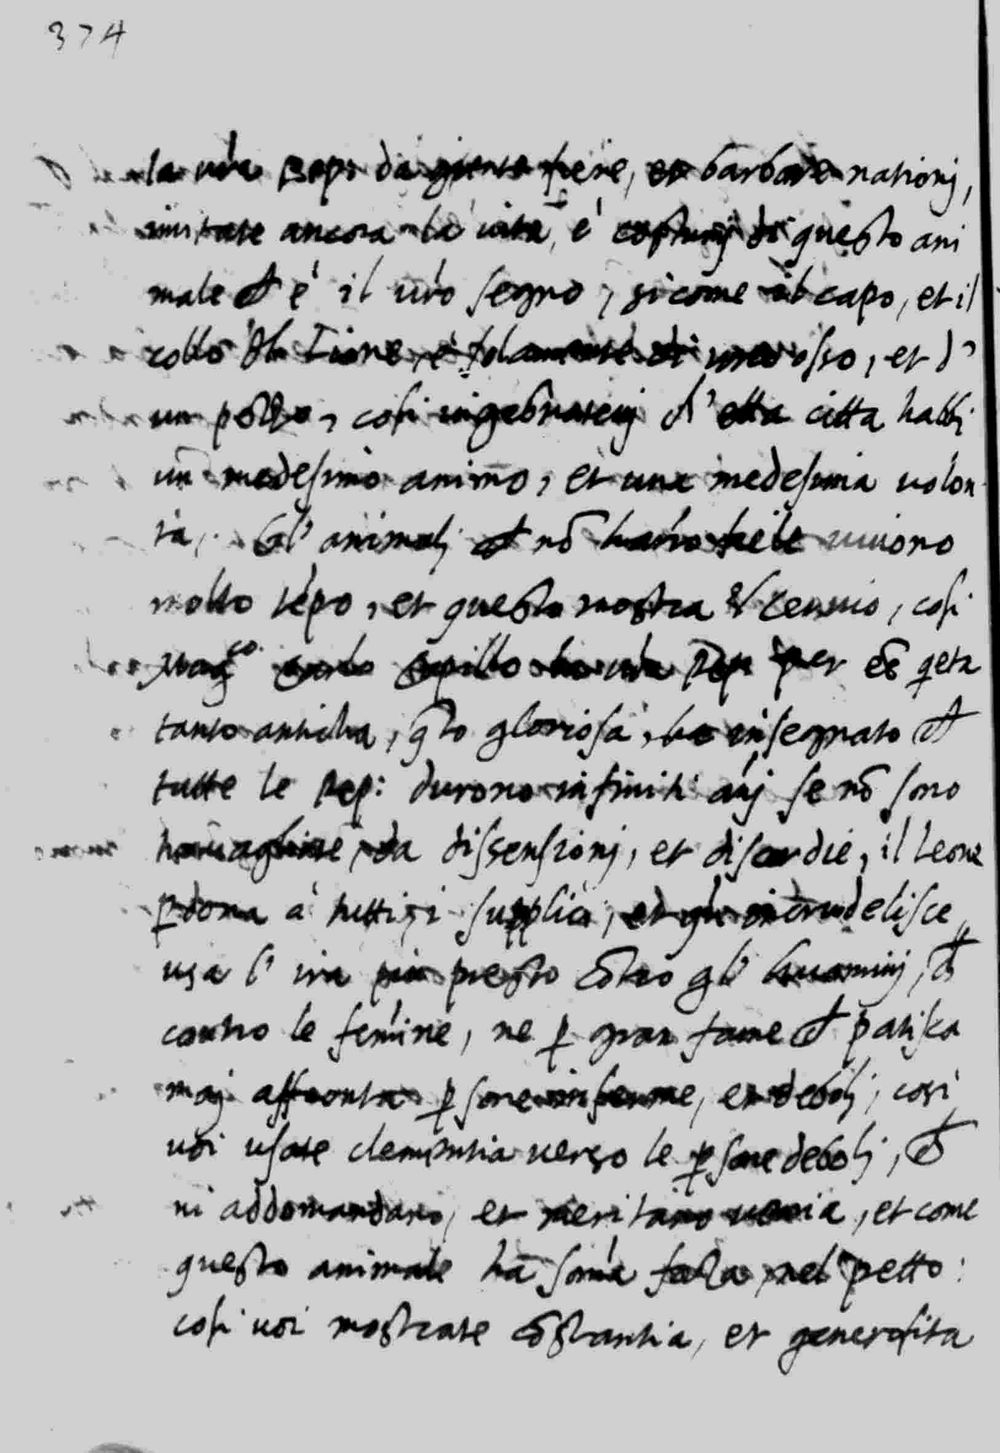 374
la vr̃a Rep: da gente fiere, et barbare nationj,
imitate ancora la uita, e costumj di questo ani
male ch̃ è il ur̃o segno, si come il capo, et il
collo dl Lione, è solamente di uno osso, et d'
un pezzo, cosi d' etta citta habbi
un medesimo animo, et una medesima uolon
tà. Gl' animalj ch̃ nõ hanno fiele uiuono
molto tẽpo, et questo mostra il Ceruio, cosi
Mag.co la vr̃a Rep: per eẽ q̃eta
tanto anticha, q̃to gloriosa, ha insegnato ch̃
tutte le Rep: durono infiniti añj se nõ sono
trauagliate da dissensionj, et discordie, il Leone
p̱dona à tutti i supplici, et gli incrudelisce
usa l' ira piu presto cõtro gl' huominj, ch̃
contro le femine, ne p̱ gran fame ch̃ patisca
maj affronta p̱sone inferme, et debolj, cosi
uoi usate clementia uerso le p̱sone debolj, ch̃
ui addomandano, et meritano uenia, et come
questo animale ha som̃a forza nel petto:
cosi uoi mostrate cõstantia, et generosita